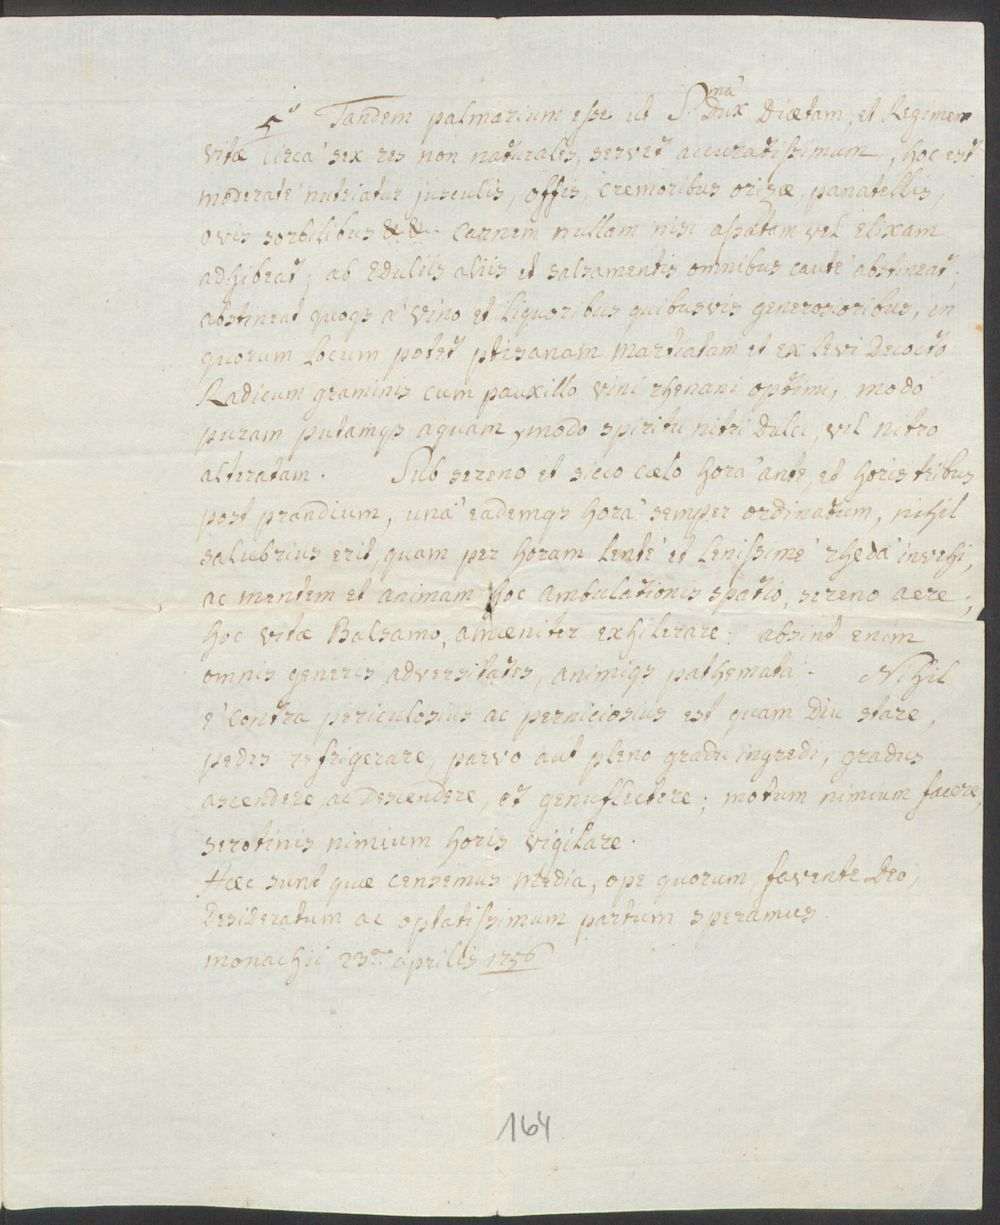 5º Tandem palmarium esse ut S.ma Dux Diætam, et Regimen
vitæ circa sex res non naturales, servet accuratissimum, hoc est
moderatè nutriatur jusculis, offis, cremoribus orizæ, panatellis,
ovis sorbilibus &c &c. Carnem nullam nisi assatam vel elixam
adhibeat; ab Eduliis aliis et salsamentis omnibus cautè abstineat;
abstineat quoqs à vino et liquoribus quibusvis generosioribus, in
quorum locum potet ptisanam martiatam et ex levi Decocto
Radicum graminis cum pauxillo vini rhenani optimi, modò
puram putamqs aquam, modo spiritu nitri Dulci, vel nitro
alteratam. Sub sereno et sicco cælo horâ ante, et horis tribus
post prandium, unâ eâdemqs horâ semper ordinatum, nihil
salubrius erit, quam per horam lentè et lenissimè rhedâ invehi,
ac mentem et animam hoc ambulationis spatio, sereno aere,
hoc vitæ Balsamo, amæniter exhilerare: absint enim
omnis generis adversitates, animiqs pathemata. Nihil
è contra periculosius ac perniciosius est quam Diu stare,
pedes refrigerare, parvo aut pleno gradu ingredi, gradus
ascendere, ac Descendere, et genuflectere; motum nimium facere,
serotinis nimium horis vigilare.
Hæc sunt quæ censemus media, ope quorum, favente Deo,
Desideratum ac optatissimum partum speramus.
monachii 23.a aprilis 1756
164